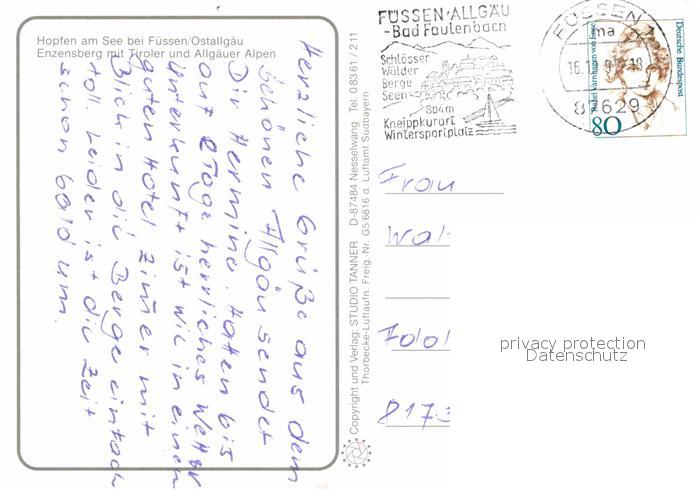 Hopfen am See bei Füssen/Ostallgäu
Enzensberg mit Tiroler und Allgäuer Alpen
Herzliche Grüße aus dem
schönen Allgäu sendet
Dir Hermine. Hatten bis
auf 2 Tage herrliches Wetter
Unterkunft ist wie in einen
guten Hotel Zimer mit
Blick in die Berge einfach
toll leider ist die Zeit
schon bald um.
Copyright und Verlag: STUDIO TANNER D-87484 Nesselwang Tel. 0 83 61 / 2 11
Thorbecke-Luftaufn. Freig.-Nr. G5/6816 d. Luftamt Südbayern
FÜSSEN/ALLGÄU
-Bad Faulenbach
Schlösser
Wälder
Berge
Seen
804m
Kneippkurort
Wintersportplatz
FÜSSEN
ma
16.1
18
87629
Deutsche Bundespost
Rahel Varnhagen von Ense
80
Frau
Wal
8173
privacy protection
Datenschutz